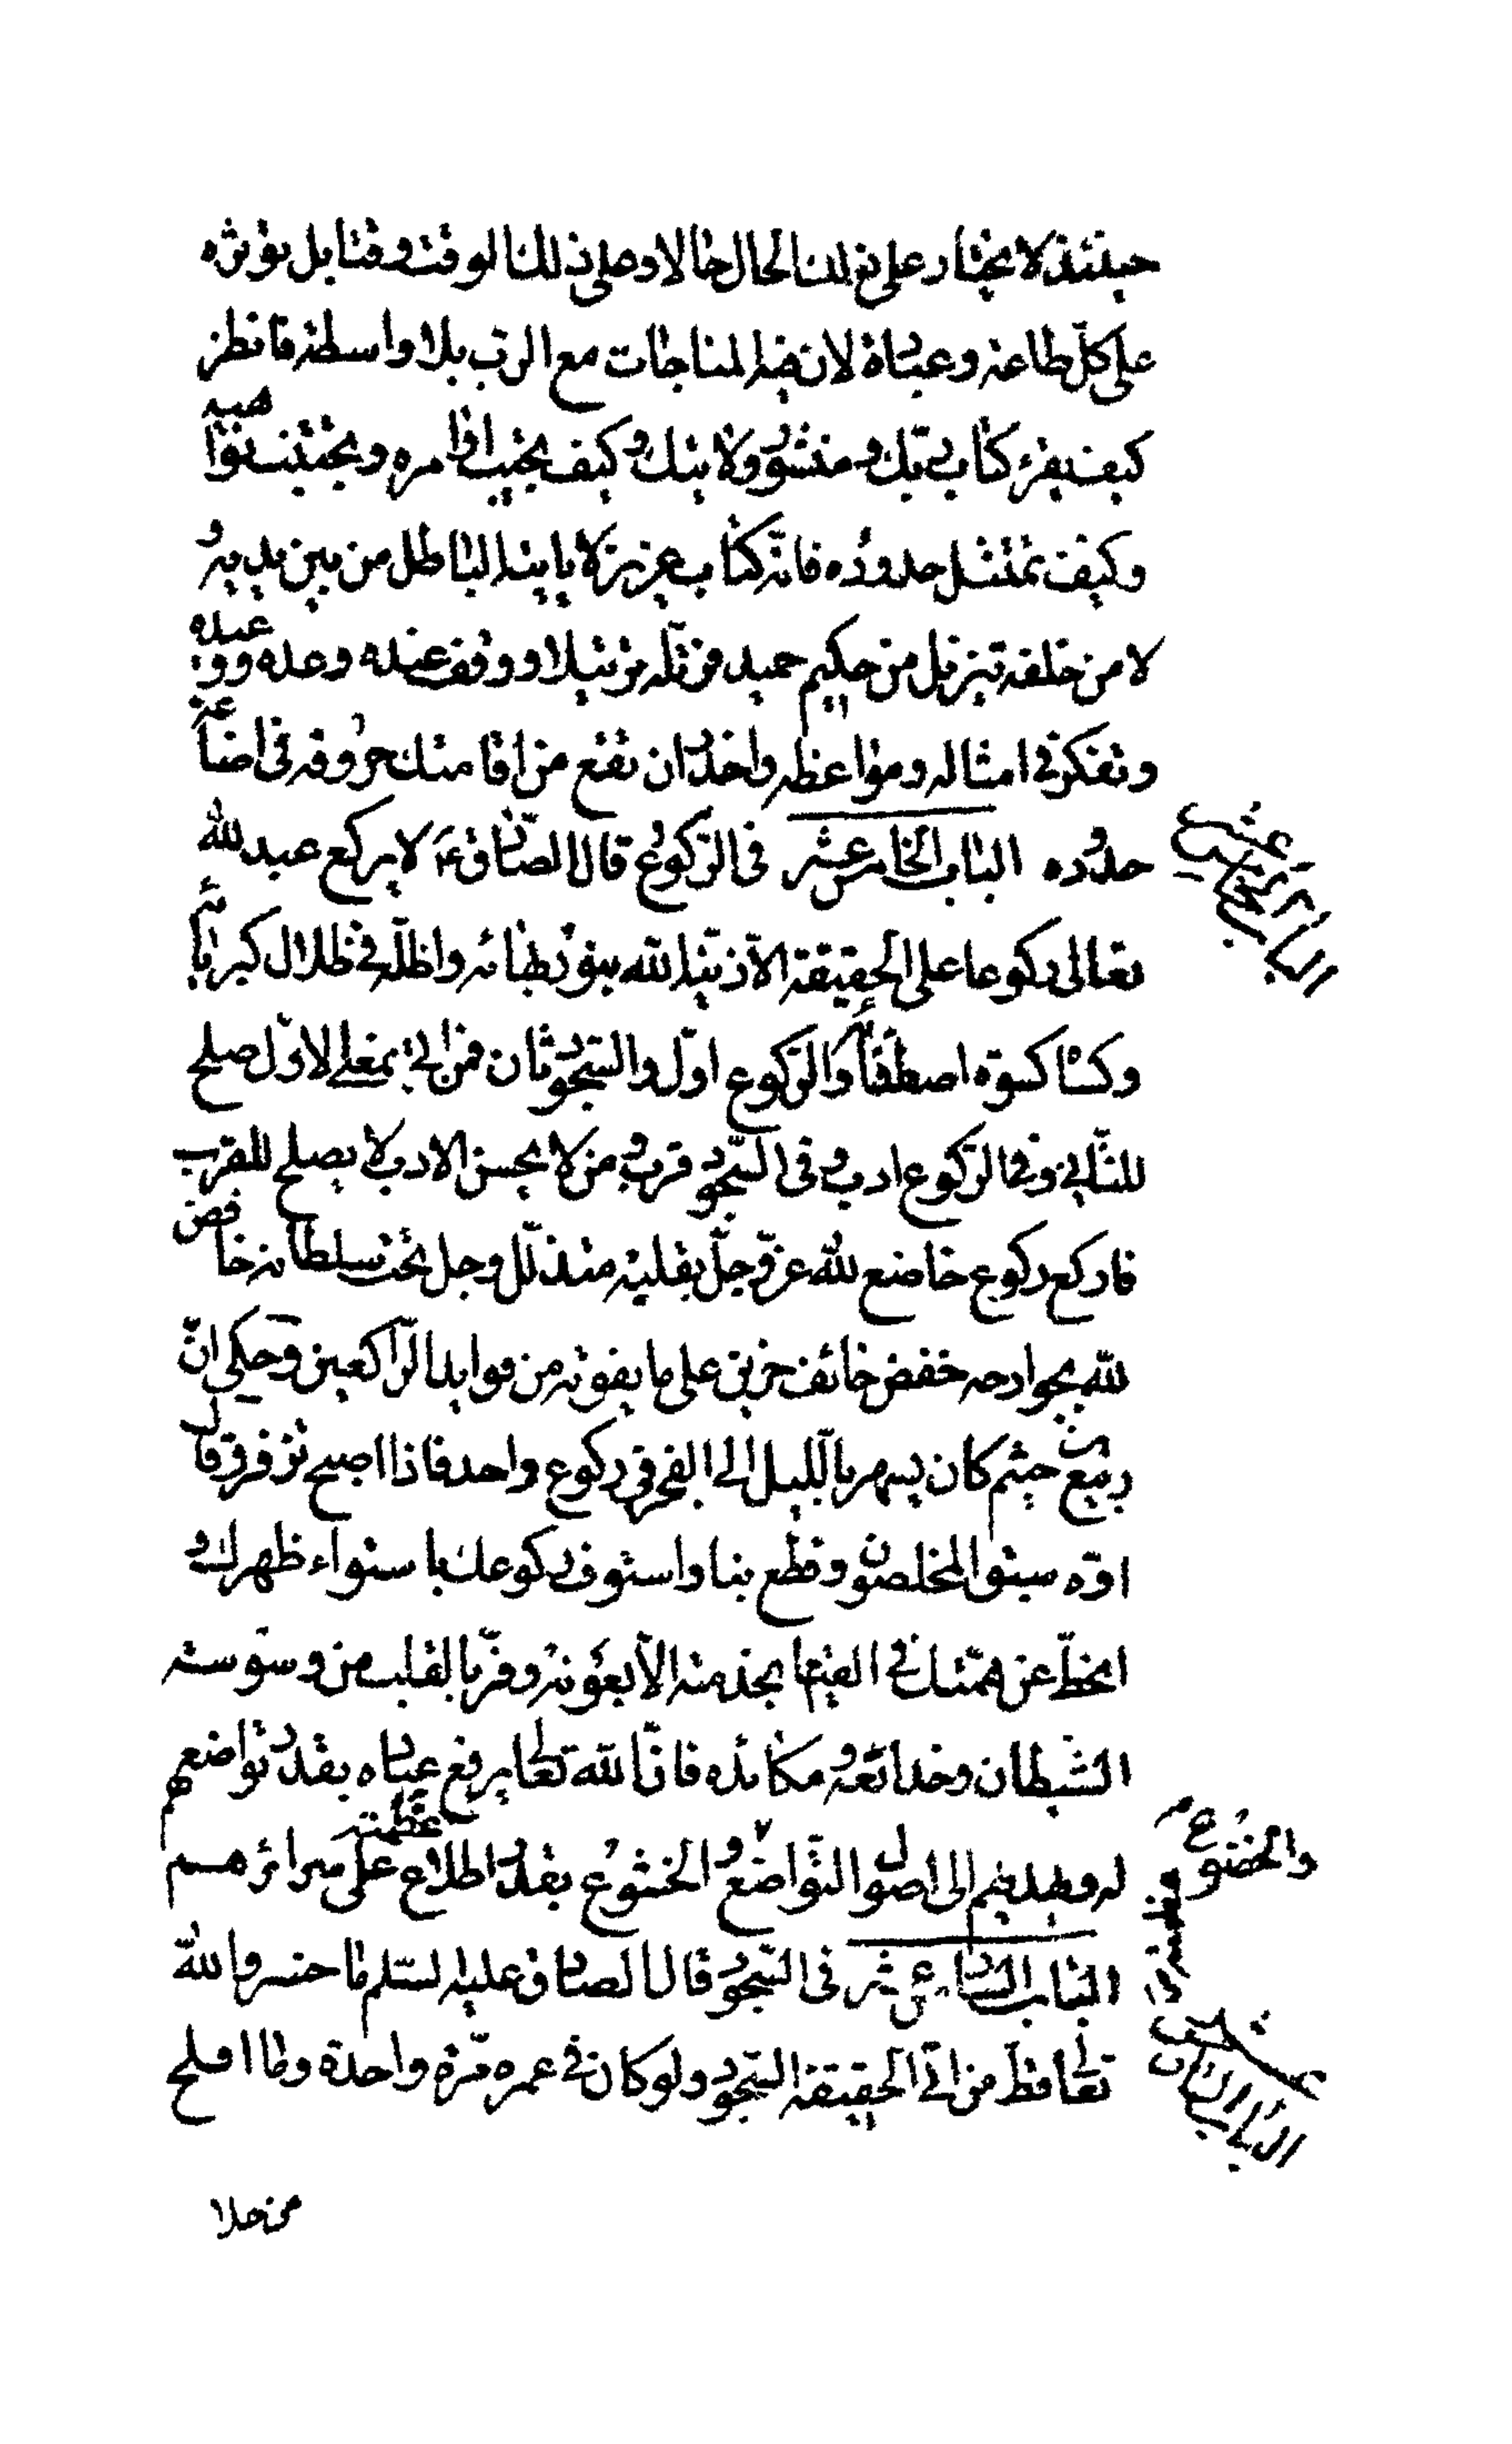 حينئذ لا يختار على ذلك الحال حالا وعلى ذلك الوقت وقتا بل يؤثره
على كل طاعة وعبادة لان فيه المناجات مع الرب بلا واسطة فانظر
كيف تقرء كتاب ربك ومنشور ولايتك وكيف تجيب اوامره وتجتنب نواهيه
وكيف تمتثل حدوده فانه كتاب عزيز لا ياتيه الباطل من بين يديه و
لا من خلفه تنزيل من حكيم حميد فرتله ترتيلا ووقف عند وعده ووعيده
وتفكر في امثاله ومواعظه واحذر ان تقع من اقامتك حروفه في اضاعة
حدوده الباب الخامس عشر في الركوع قال الصادق ع لا يركع عبد لله
تعالى ركوعا على الحقيقة الا زينه الله بنور بهائه واظله في ظلال كبريائه
وكساه كسوة اصطفائه والركوع اول والسجود ثان فمن اتى بمعنى الاول صلح
للثاني وفي الركوع ادب وفي السجود قرب ومن لا يحسن الادب لا يصلح للقرب
فاركع ركوع خاضع لله عز وجل بقلبه متذلل وجل تحت سلطانه خافض
لله بجوارحه خفض خائف حزين على ما يفوته من فوايد الراكعين وحكى ان
ربيع بن خثيم كان يسهر بالليل الى الفجر في ركوع واحد فاذا اصبح تزفر وقال
اوه سبق المخلصون وقطع بنا واستوف ركوعك باستواء ظهرك و
انحط عن همتك في القيام بخدمته الا بعونه وفر بالقلب من وسوسة
الشيطان وخدائعه ومكائده فان الله تعالى يرفع عباده بقدر تواضعهم
له ويهديهم الى اصول التواضع و الخشوع بقدر اطلاع عظمته على سرائرهم
والخضوع
الباب السادس عشر في السجود قال الصادق عليه السلم ما خسر والله
تعالى قط من اتى الحقيقة السجود ولو كان في عمره مرة واحدة وما افلح
من خلا
الباب الخامس عشر
الباب السادس عشر